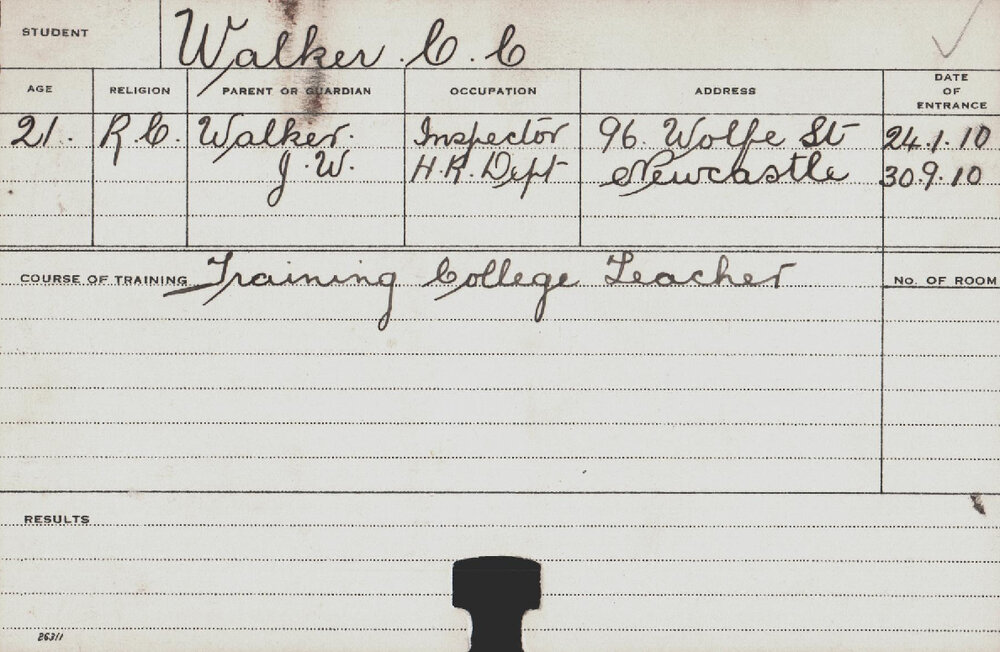 STUDENT Walker. C. C
AGE RELIGION PARENT OR GUARDIAN OCCUPATION ADDRESS DATE OF ENTRANCE
21. R.C. Walker. Inspector 96. Wolfe St 24.1.10
J.W. H.R. Dept Newcastle 30.9.10
COURSE OF TRAINING Training College Teacher NO. OF ROOM
RESULTS
26311